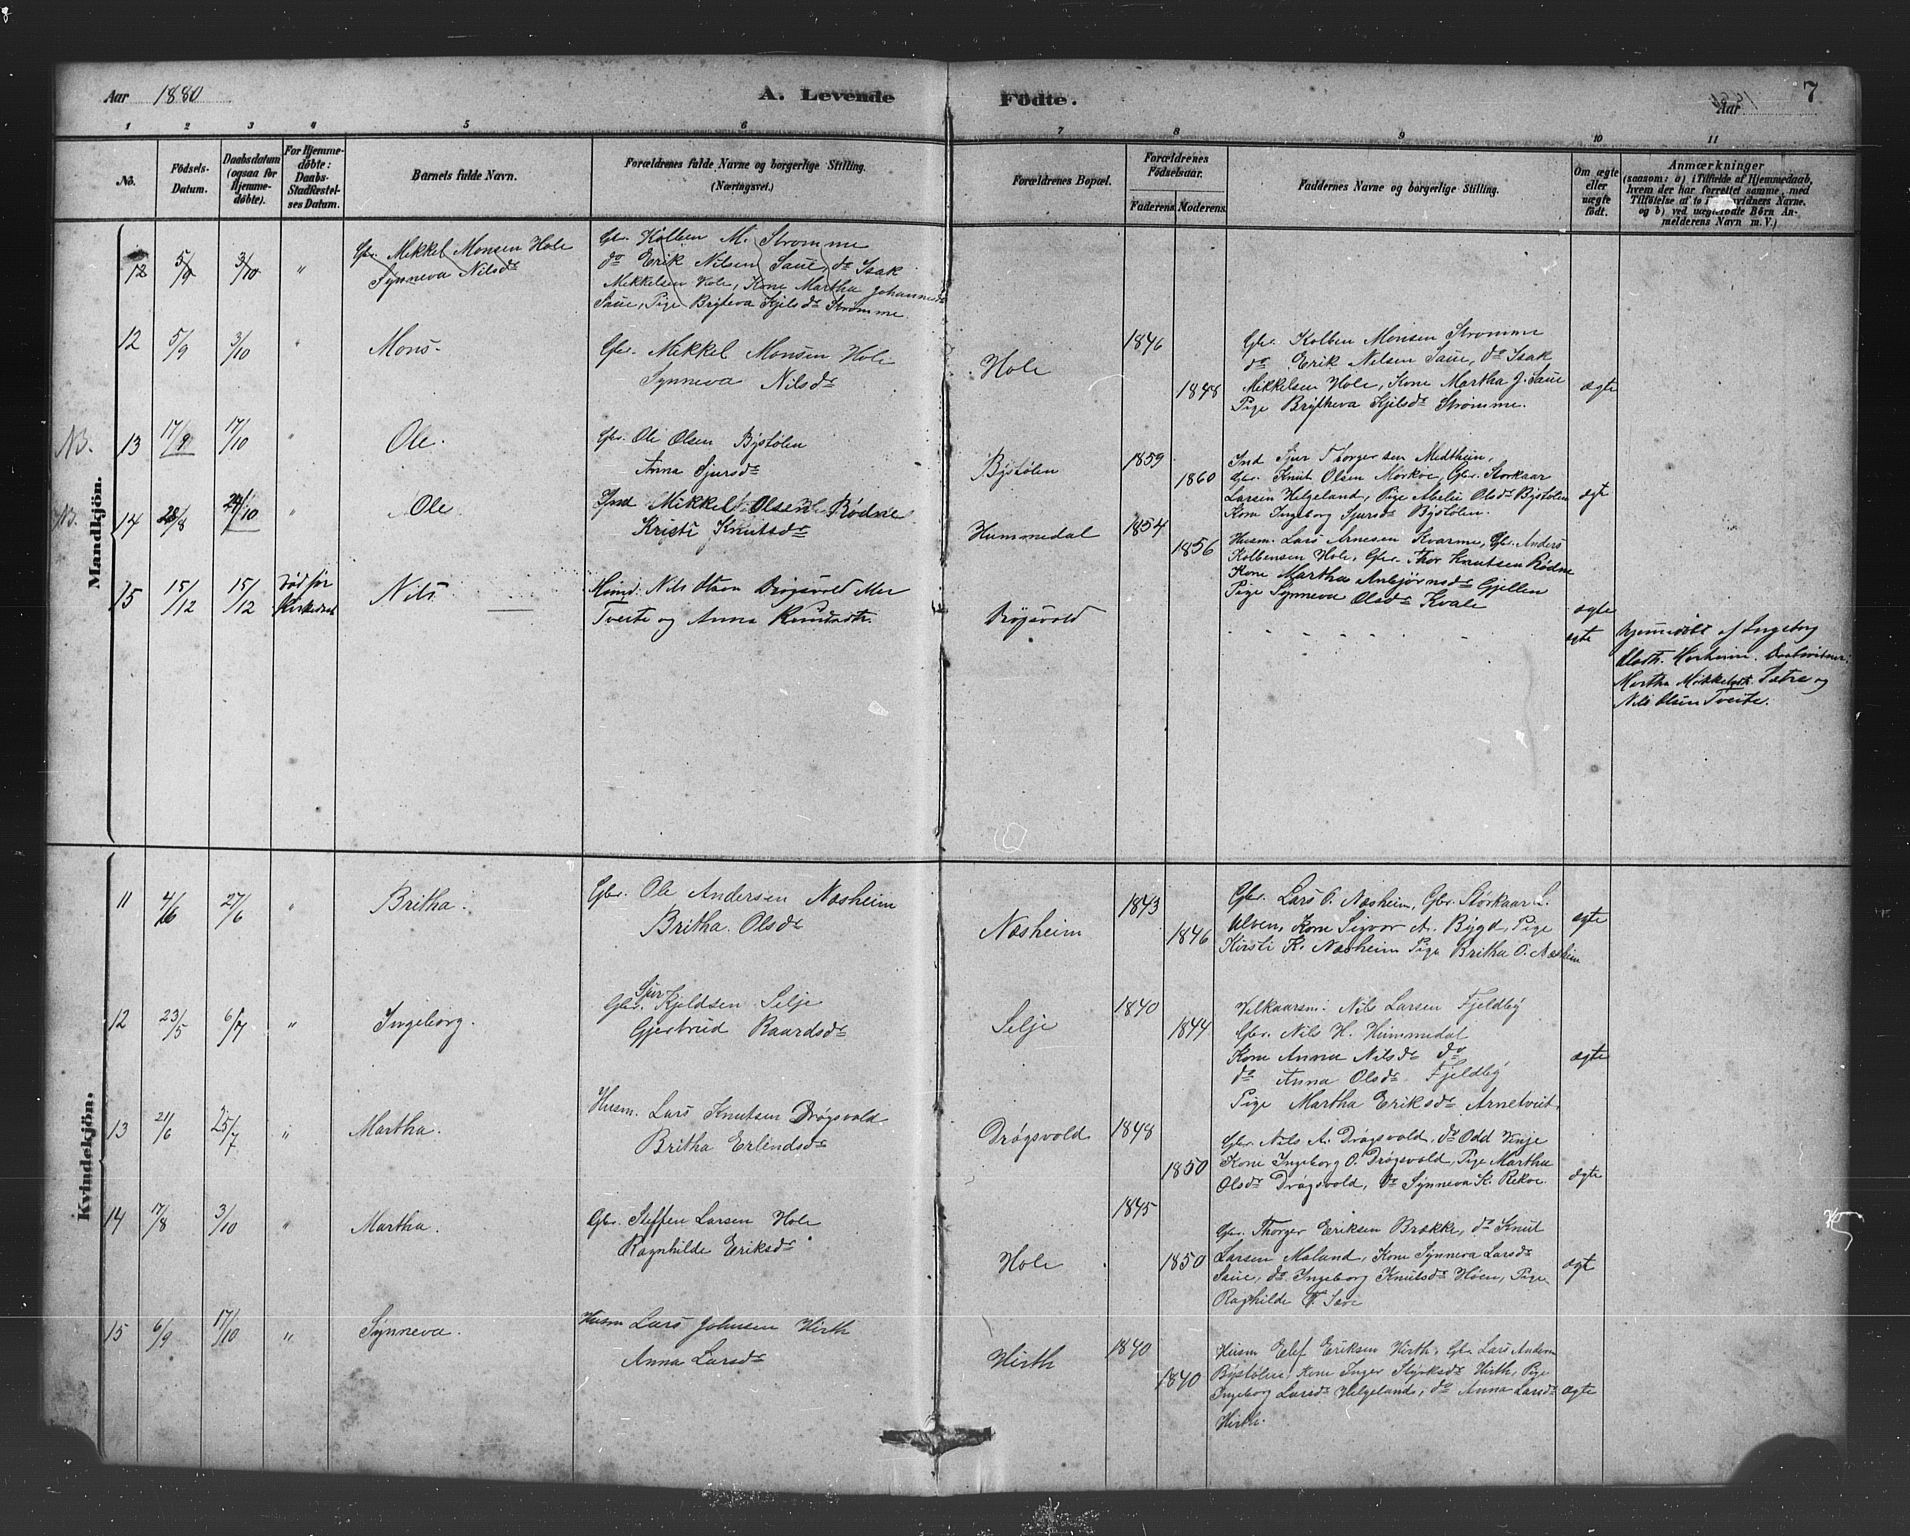 Aar 1880
A. Levende Fødte.
Aar
7
1 2 3 4 5 6 7 8 9 10 11
No.
Fødsels-Datum.
Daabsdatum (ogsaa for Hjemme-døbte).
For Hjemme-døbte: Daabs-Stadfæstel-ses Datum.
Barnets fulde Navn.
Forældrenes fulde Navne og borgerlige Stilling. (Næringsvei.)
Forældrenes Bopæl.
Forældrenes Fødselsaar.
Faderens Moderens.
Faddernes Navne og borgerlige Stilling.
Om ægte eller uægte født.
Anmærkninger
(saasom: a) i Tilfælde af Hjemmedaab, hvem der har forrettet samme, med Tilføielse af to Daabsvidners Navne, og b) ved uægtefødte Børn An-melderens Navn m. V.)
Mandkjön.
12 5/9 3/10 "
Gbr. Mikkel Monsen Hole
Synneva Nilsdr
Gbr. Kolben M. Strømme
do Erik Nilsen Saue, do Isak
Mikkelsen Hole, Kone Martha Johannesdr
Saue, Pige Bryteva Kjilsdr Strømme.
12 5/9 3/10 " Mons.
Gbr. Mikkel Monsen Hole
Synneva Nilsdr
Hole 1846 1848
Gbr. Kolben Monsen Strømme
do Erik Nilsen Saue, do Isak
Mikkelsen Hole, Kone Martha J. Saue
Pige Brytheva Kjilsdr Strømme.
ægte
NB. 13 17/9 17/10 " Ole.
Gbr. Ole Olsen Bystølen
Anna Sjursdr
Bystølen 1859 1860
Ind Sjur Thorgersen Medtheim,
Gbr. Knut Olsen Mørkve, Gbr. Storkaar
Larsen Helgeland, Pige Abelie Olsdr Bystølen
Kone Ingeborg Sjursdr Bystølen.
ægt
NB. 14 28/8 24/10 " Ole.
Ind Mikkel Olsen Rødne
Kristi Knutsdr
Hummedal 1854 1856
Husm. Lars Arnesen Kvarme, Gbr. Anders
Kolbensen Hole, Gbr. Thor Knutsen Rødne
Kone Martha Anbjørnsdr Gjellen
Pige Synneva Olsdr Kvale
ægte
15 15/12 15/12 død før Nils
Nils Olsen Drøgsvold eller
Tveite og Anna Knudsdtr.
Drøgsvold
ægte
hjemmedøbt af Ingeborg
Olsdtr. Horheim. Daabsvidner:
Martha Mikkelsdtr. Sætre og
Nils Olsen Tveite.
Kvindekjön.
11 4/6 27/6 " Britha.
Gbr. Ole Andersen Næsheim
Britha Olsdr
Næsheim 1843 1846
Gbr. Lars O. Næsheim, Gbr. Størkaar L.
Ulven, Kone Sigvor A. Bygd, Pige
Kirsti K. Næsheim Pige Britha O. Næsheim
ægte
12 23/5 6/7 " Ingeborg.
Gbr. Sjur Kjeldsen Selje
Gjertrud Baardsdr
Selje 1840 1844
Vilkaarsm. Nils Larsen Fjeldby
Gbr. Nils H. Hummedal
Kone Anna Nilsdr do
do Anna Olsdr Fjeldby
Pige Martha Eriksdr Arnetveit.
ægte
13 21/6 25/7 " Martha.
Husm. Lars Knutsen Drøgsvold
Britha Erlendsdr
Drøgsvold 1848 1850
Gbr. Nils A. Drøgsvold, do Odd Vinje
Kone Ingeborg O. Drøgsvold, Pige Martha
Olsdr Drøgsvold, do Synneva K. Rekve
ægte
14 17/8 3/10 " Martha.
Gbr. Steffen Larsen Hole
Ragnhilde Eriksdr
Hole 1845 1850
Gbr. Thorger Eriksen Brække, do Knut
Larsen Møland, Kone Synneva Larsdr
Saue, do Ingeborg Knutsdr Høen, Pige
Ragnhilde
ægt
15 6/9 17/10 " Synneva.
Husm Lars Johnsen Hirth
Anna Larsdr
Hirth 1840 1840
Husm Elef Eriksen Hirth, Gbr Lars Andersen
Bystølen, Kone Inger Styrksdr Hirth, Pige
Ingeborg Larsdr Helgeland, do Anna Larsdr
Hirth.
ægte